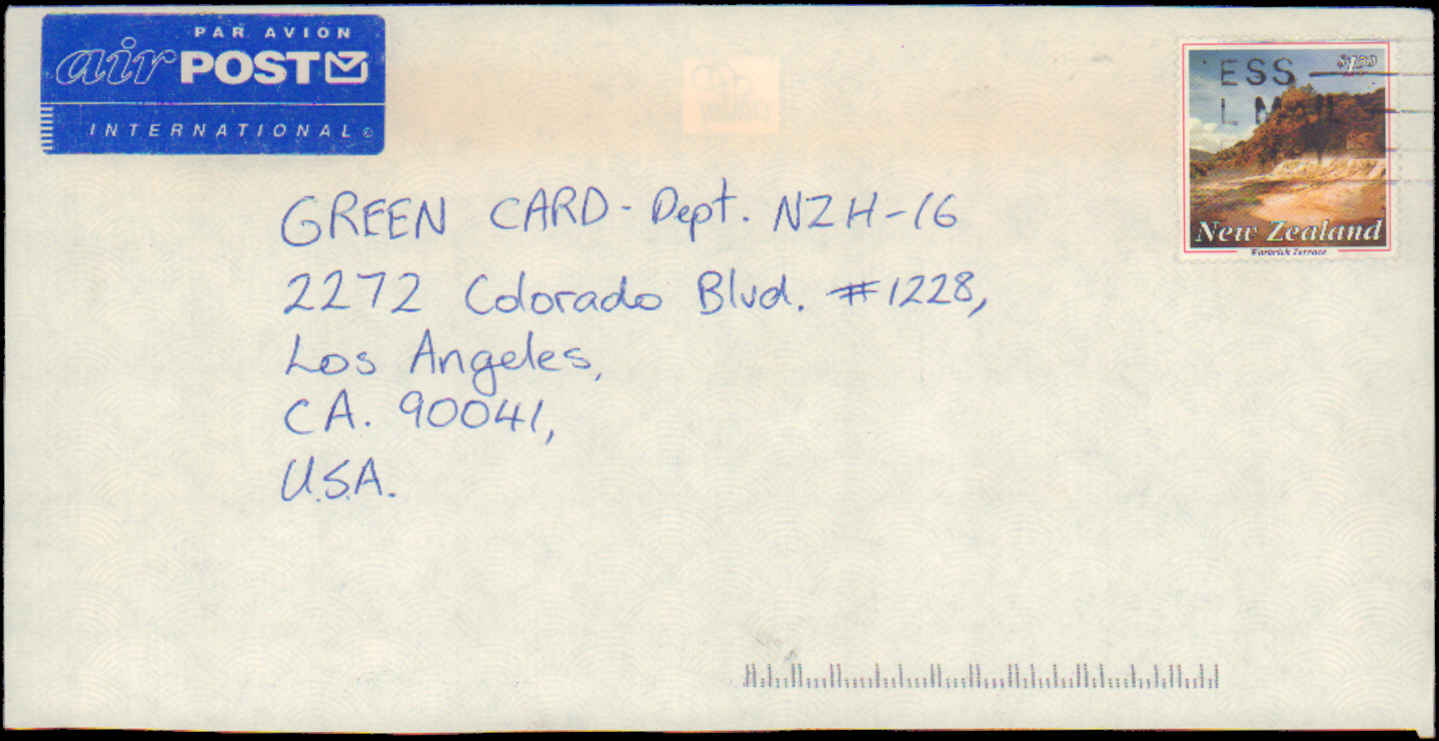 PAR AVION
air POST
INTERNATIONAL ©
ESS
L MAIL
New Zealand
GREEN CARD - Dept. NZH-16
2272 Colorado Blvd. #1228,
Los Angeles,
CA. 90041,
U.S.A.